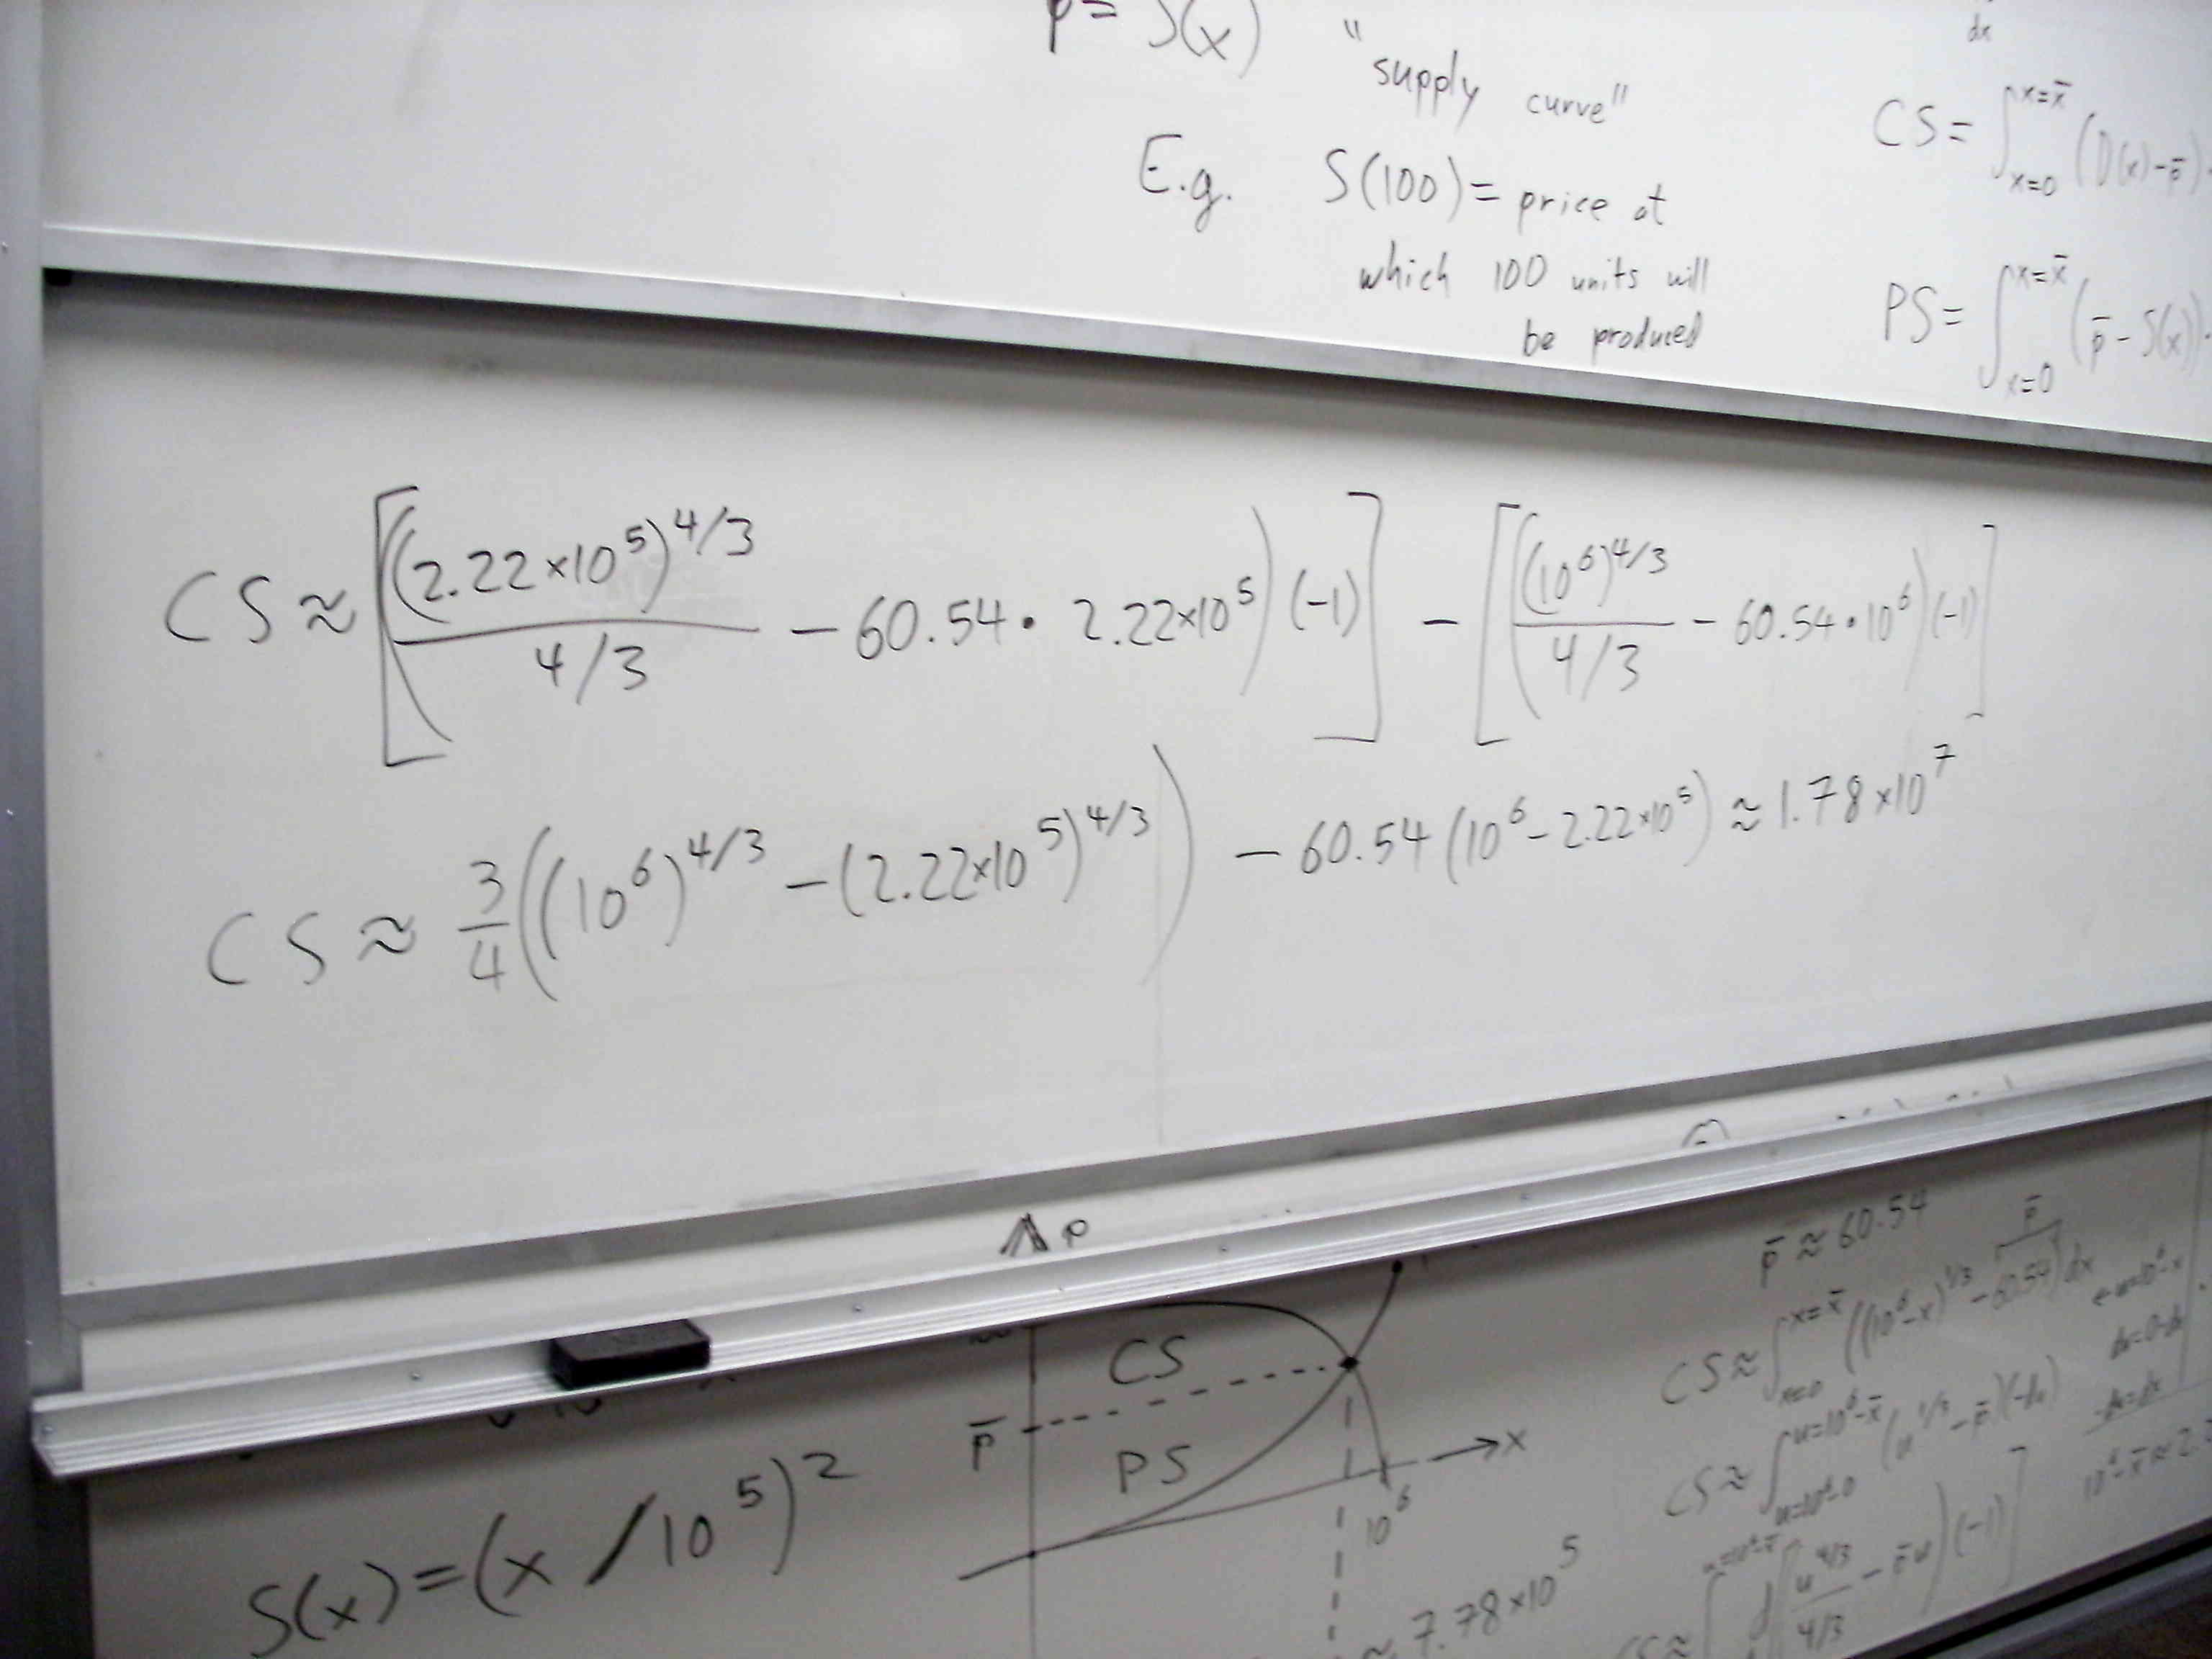 p = S(x) "supply curve"
E.g. S(100) = price at
which 100 units will
be produced
dx
CS = ∫_{x=0}^{x=x̄} (D(x) - p̄)
PS = ∫_{x=0}^{x=x̄} (p̄ - S(x))
CS ≈ [((2.22×10^5)^{4/3} / (4/3) - 60.54 · 2.22×10^5)(-1)] - [((10^6)^{4/3} / (4/3) - 60.54 · 10^6)(-1)]
CS ≈ 3/4 ((10^6)^{4/3} - (2.22×10^5)^{4/3}) - 60.54 (10^6 - 2.22×10^5) ≈ 1.78×10^7
p
CS
p̄
PS
x
10^6
≈ 7.78×10^5
S(x) = (x / 10^5)^2
p̄ ≈ 60.54
CS ≈ ∫_{x=0}^{x=x̄} ((10^6 - x)^{1/3} - 60.54) dx
p̄
← u = 10^6 - x
-du = dx
CS ≈ ∫_{u=10^6-0}^{u=10^6-x̄} (u^{1/3} - p̄)(-du)
10^6 - x̄ ≈ 2.2
CS ≈ ∫^{u=10^6-x̄} d[(u^{4/3} / (4/3) - p̄u)(-1)]